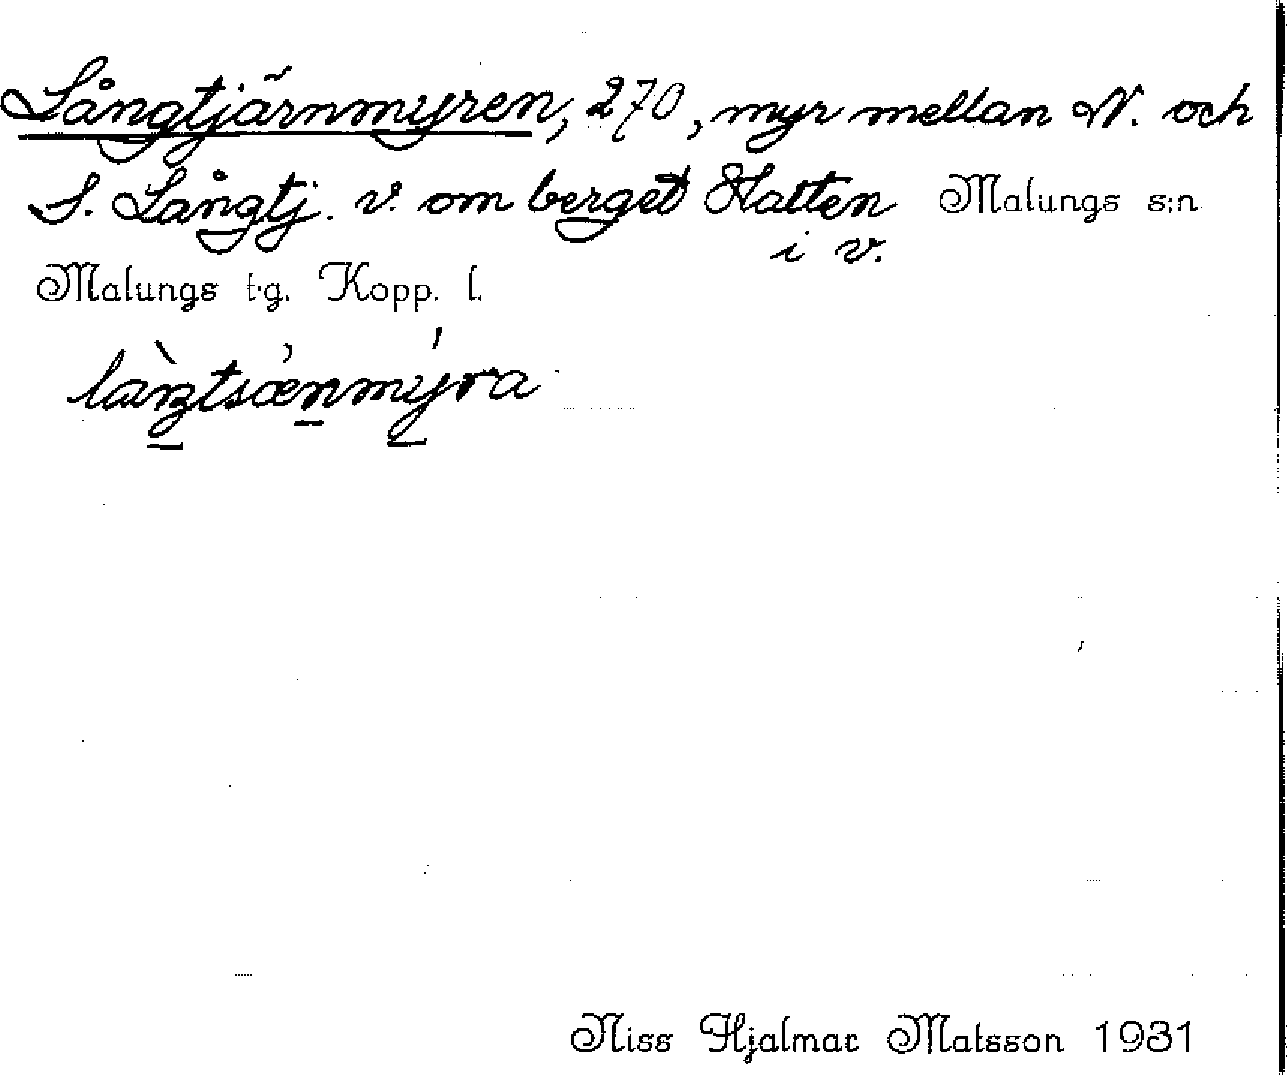 Långtjärnmyren, 270, myr mellan N. och
S. Långtj. v. om berget Hatten Malungs s:n
i v.
Malungs t·g. Kopp. l.
Niss Hjalmar Matsson 1931